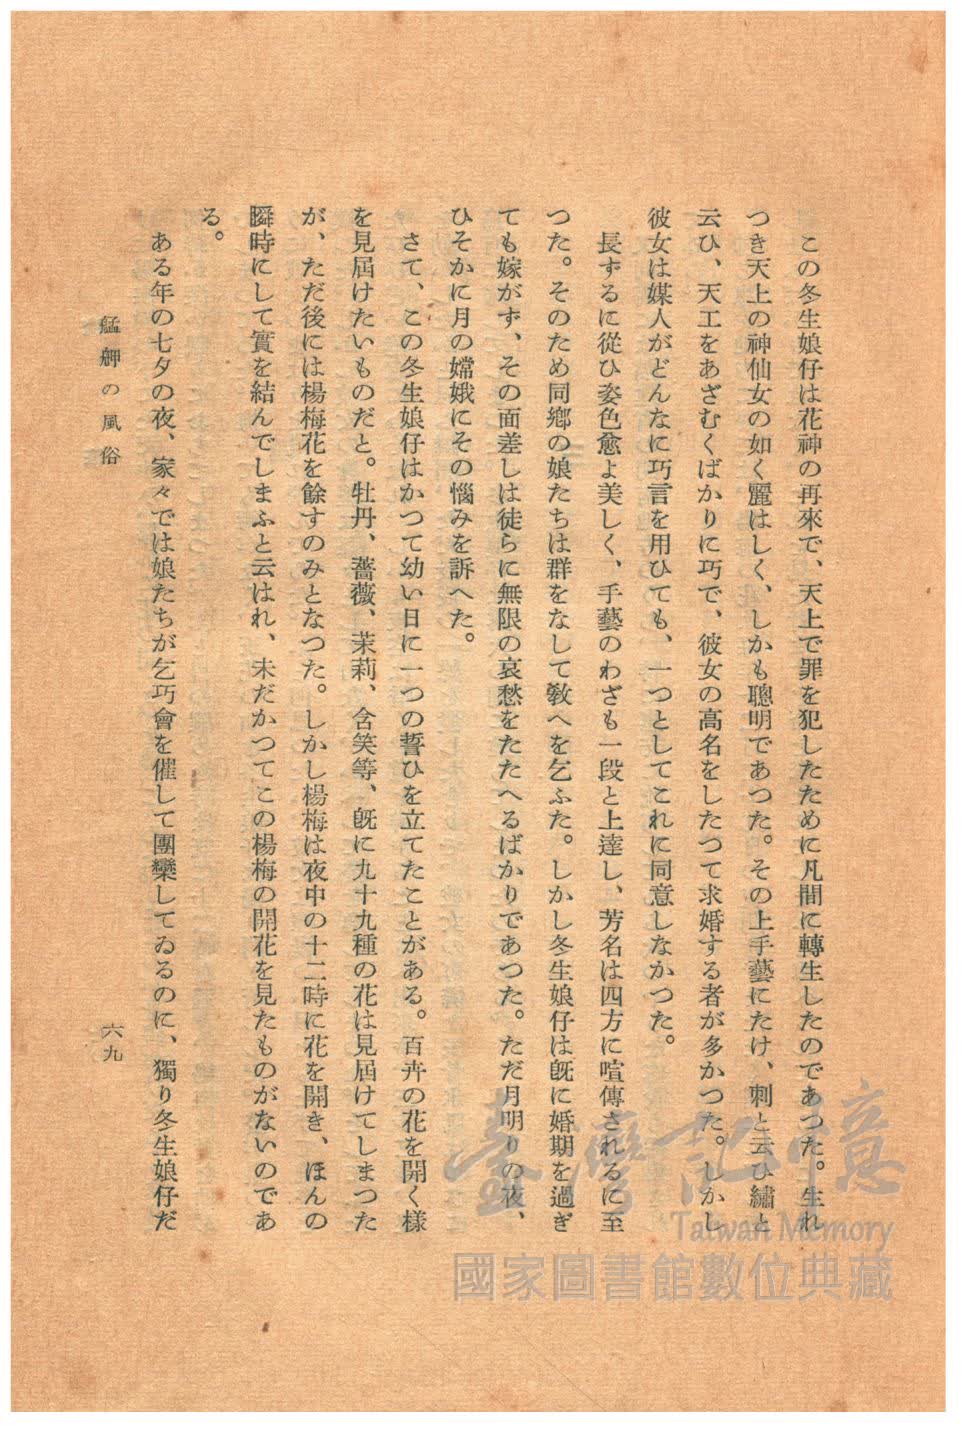 この冬生娘仔は花神の再來で、天上で罪を犯したために凡間に轉生したのであつた。生れ
つき天上の神仙女の如く麗はしく、しかも聰明であつた。その上手藝にたけ、刺と云ひ繡と
云ひ、天工をあざむくばかりに巧で、彼女の高名をしたつて求婚する者が多かつた。しかし
彼女は媒人がどんなに巧言を用ひても、一つとしてこれに同意しなかつた。
長ずるに從ひ姿色愈よ美しく、手藝のわざも一段と上達し、芳名は四方に喧傳されるに至
つた。そのため同鄉の娘たちは群をなして敎へを乞ふた。しかし冬生娘仔は旣に婚期を過ぎ
ても嫁がず、その面差しは徒らに無限の哀愁をたたへるばかりであつた。ただ月明りの夜、
ひそかに月の嫦娥にその惱みを訴へた。
さて、この冬生娘仔はかつて幼い日に一つの誓ひを立てたことがある。百卉の花を開く樣
を見屆けたいものだと。牡丹、薔薇、茉莉、含笑等、旣に九十九種の花は見屆けてしまつた
が、ただ後には楊梅花を餘すのみとなつた。しかし楊梅は夜中の十二時に花を開き、ほんの
瞬時にして實を結んでしまふと云はれ、未だかつてこの楊梅の開花を見たものがないのであ
る。
ある年の七夕の夜、家々では娘たちが乞巧會を催して團欒してゐるのに、獨り冬生娘仔だ
艋舺の風俗
六九
臺灣記憶
Taiwan Memory
國家圖書館數位典藏